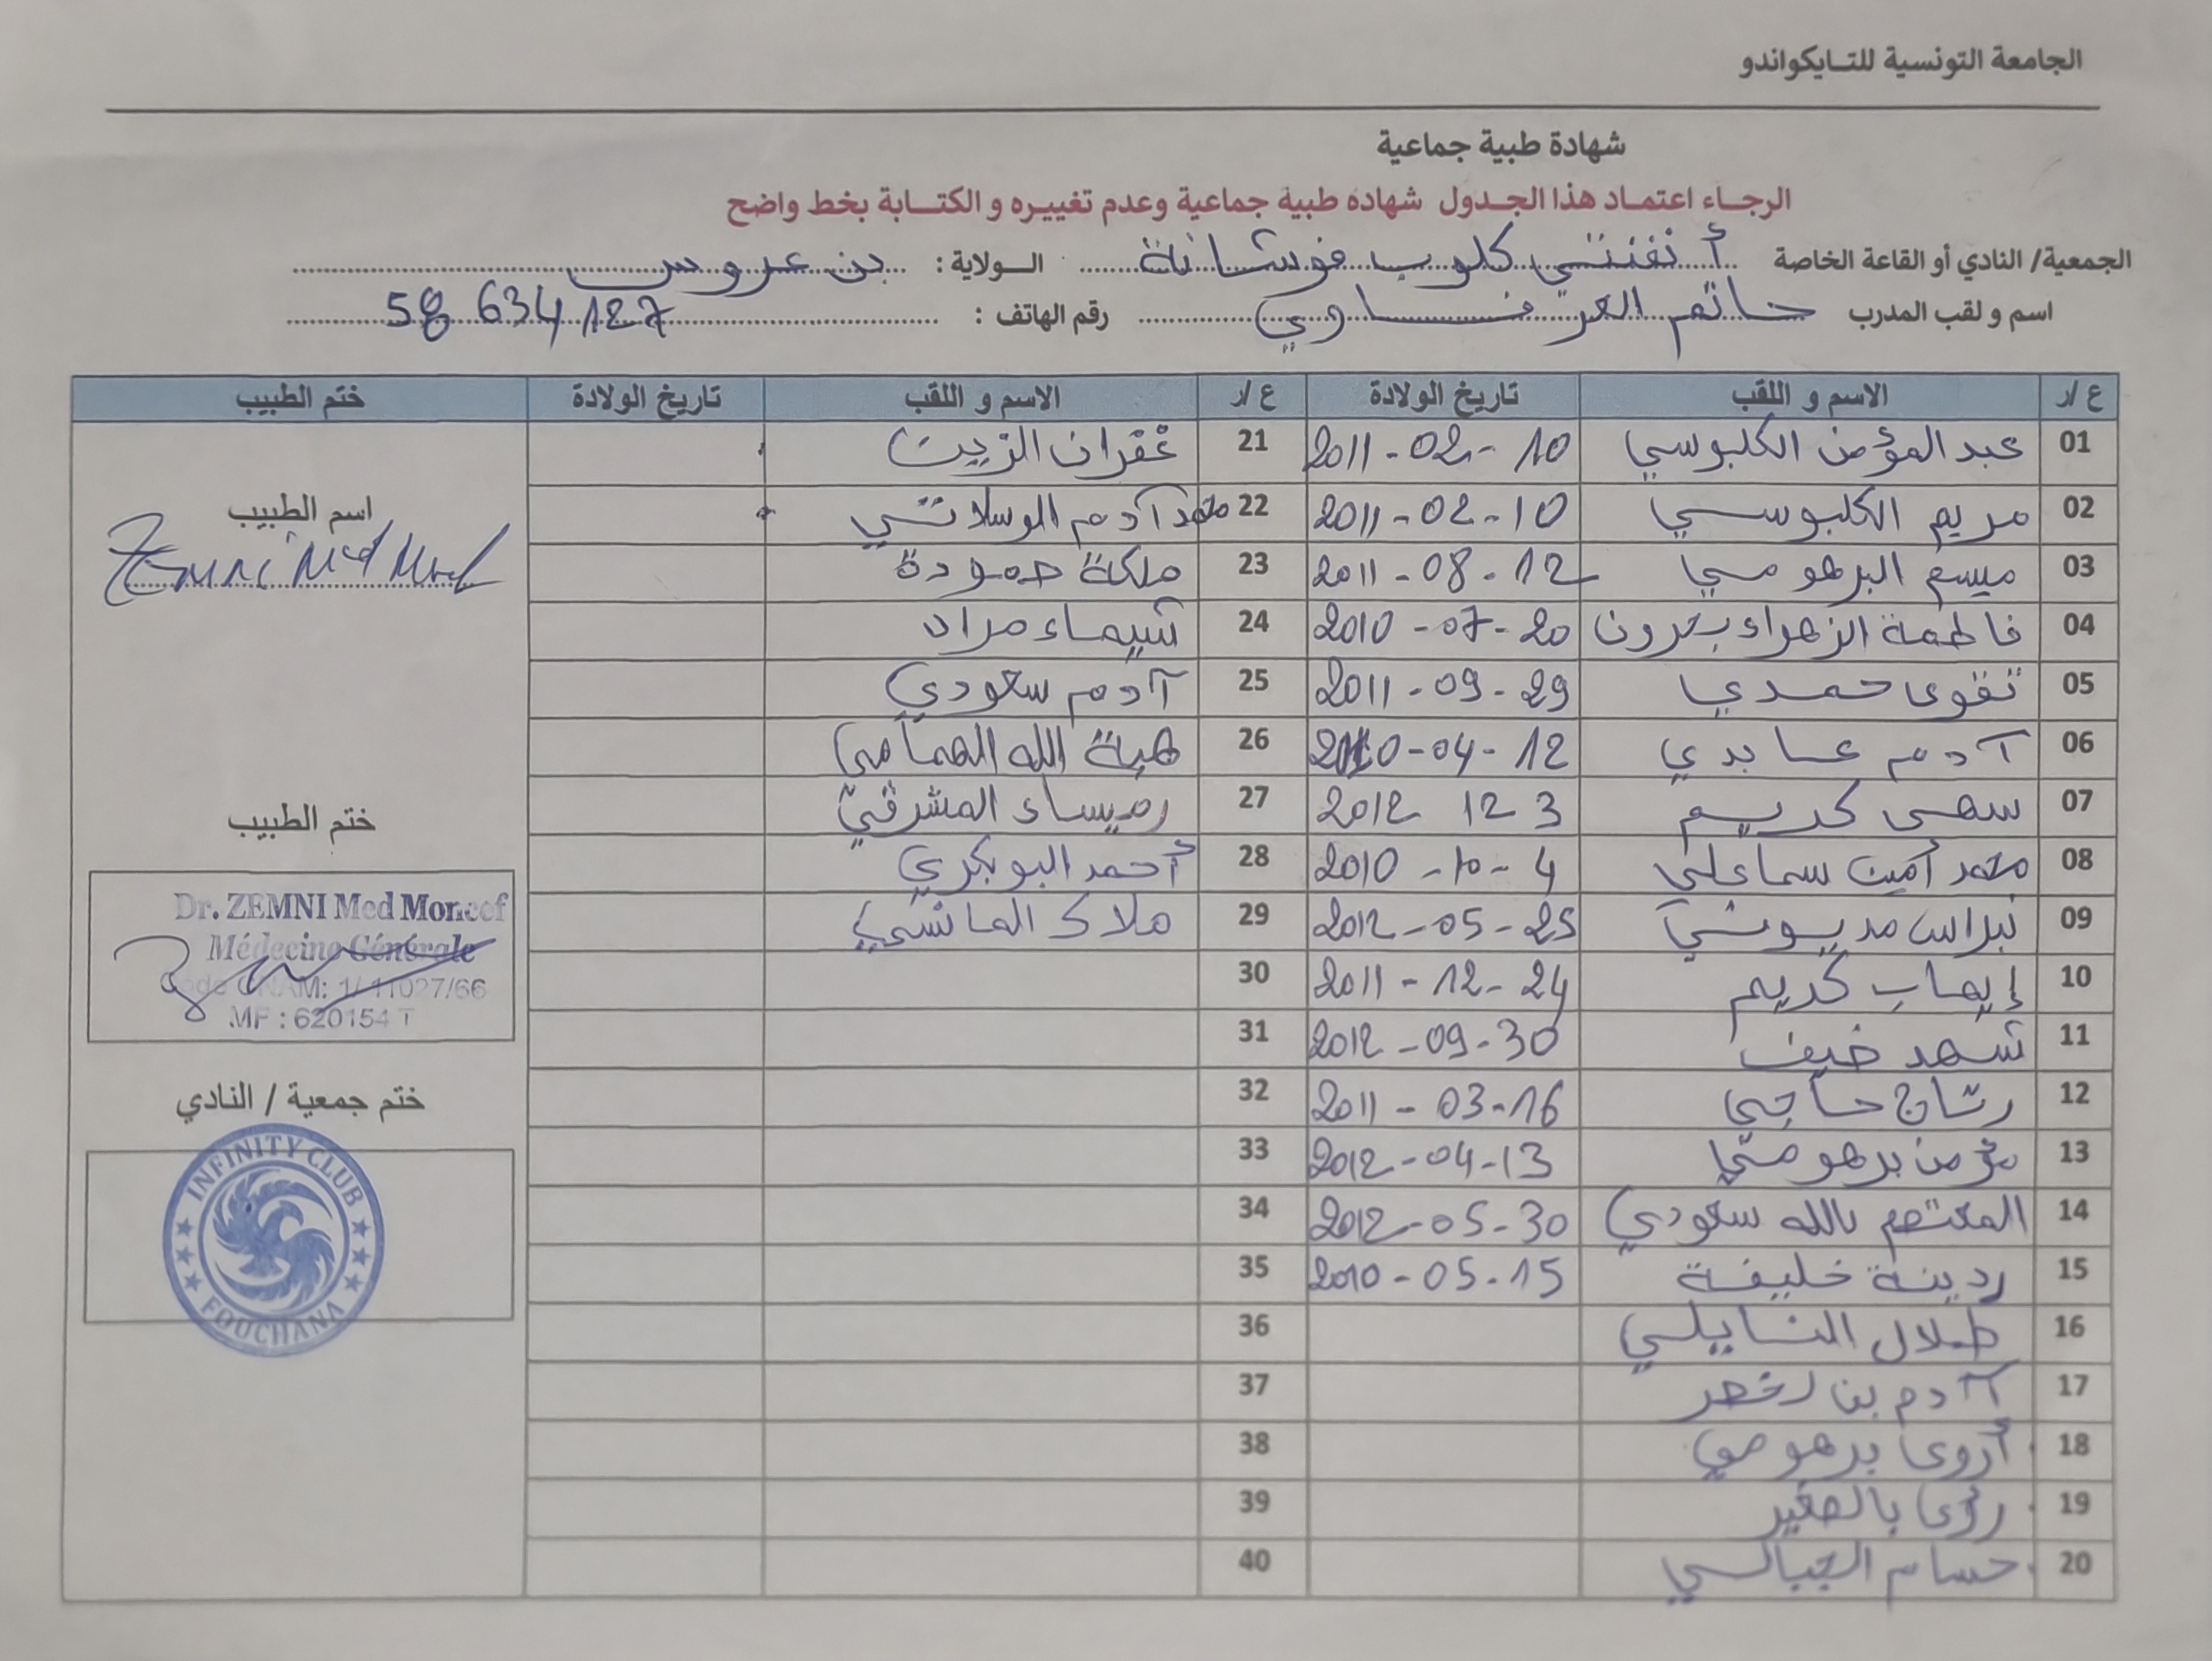 الجامعة التونسية للتـايكواندو
شهادة طبية جماعية
الرجـاء اعتمـاد هذا الجـدول شهاده طبية جماعية وعدم تغييـره و الكتـــابة بخط واضح
الجمعية/ النادي أو القاعة الخاصة أنفنتي كلوب فوشانة الــولاية : بن عروس
اسم و لقب المدرب حاتم العرفاوي رقم الهاتف : 58 634 127
ع /ر الاسم و اللقب تاريخ الولادة ع /ر الاسم و اللقب تاريخ الولادة ختم الطبيب
01 عبد المؤمن الكلبوسي 2011-02-10 21 غفران الزيت
02 مريم الكلبوسي 2011-02-10 22 محمد آدم الوسلاتي
03 ميسم البرهومي 2011-08-12 23 ملكة حمودة
04 فاطمة الزهراء 2010-07-20 24 شيماء مراد
05 تقوى حمدي 2011-09-29 25 آدم سعودي
06 آدم عابدي 2010-04-12 26 هبة الله الهمامي
07 سهى كريم 2012 12 3 27 رميساء المشرقي
08 محمد أمين سماعلي 2010-10-4 28 أحمد البوبكري
09 نبراس مديوني 2012-05-25 29 ملاك
10 إيهاب كريم 2011-12-24 30
11 شهد ضيف 2012-09-30 31
12 حاجي 2011-03-16 32
13 مؤمن برهومي 2012-04-13 33
14 المعتصم بالله سعودي 2012-05-30 34
15 ردينة خليفة 2010-05-15 35
16 طلال النايلي 36
17 آدم بن لخضر 37
18 أروى برهومي 38
19 رؤى بالصغير 39
20 حسام الجبالي 40
اسم الطبيب
Zemni Med
ختم الطبيب
Dr. ZEMNI Med Moncef
Médecine Générale
Code CNAM: 1/ 11027/66
MF : 620154 T
ختم جمعية / النادي
INFINITY CLUB
FOUCHANA